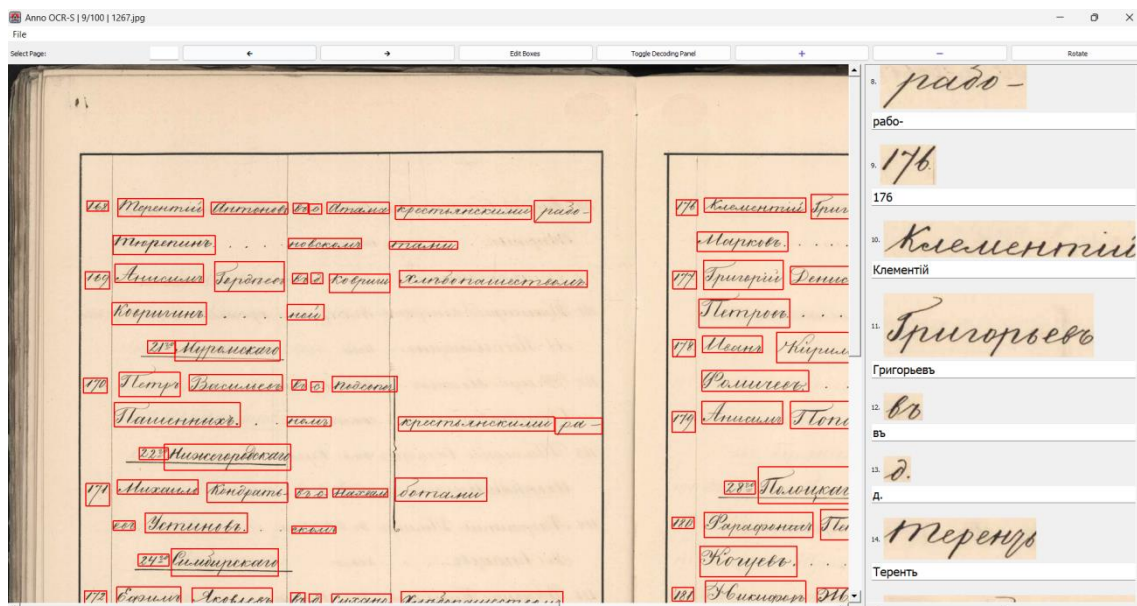 Anno OCR-S | 9/100 | 1267.jpg
File
Select Page:
←
→
Edit Boxes
Toggle Decoding Panel
+
−
Rotate
168 Терентій Антоновъ въ о крестьянскими рабо-
Тюрепинъ. . . . . тами
169 Анисимъ Гордѣевъ въ д. Коври Хлѣбопашествомъ
Ковригинъ . . . . ной
21го Муромскаго
170 Петръ Васильевъ въ о.
Пашенныхъ. . . крестьянскими ра-
22го Нижегородскаго
171 Михаилъ Кондрать- ботами
евъ Устиновъ. . .
24го Симбирскаго
172 Ефимъ Яковлевъ въ о Хлѣбопашествомъ
176 Клементій Григ
Марковъ. . . .
177 Григорій Денис
Петровъ. . . .
178 Иванъ Кирил
Фомичевъ. . .
179 Анисимъ
28го Полоцкаг
180 Парафонъ
181 Никифоръ
8.
рабо-
рабо-
9.
176.
176
10.
Клементій
Клементій
11.
Григорьевъ
Григорьевъ
12.
въ
въ
13.
д.
д.
14.
Теренть
Теренть